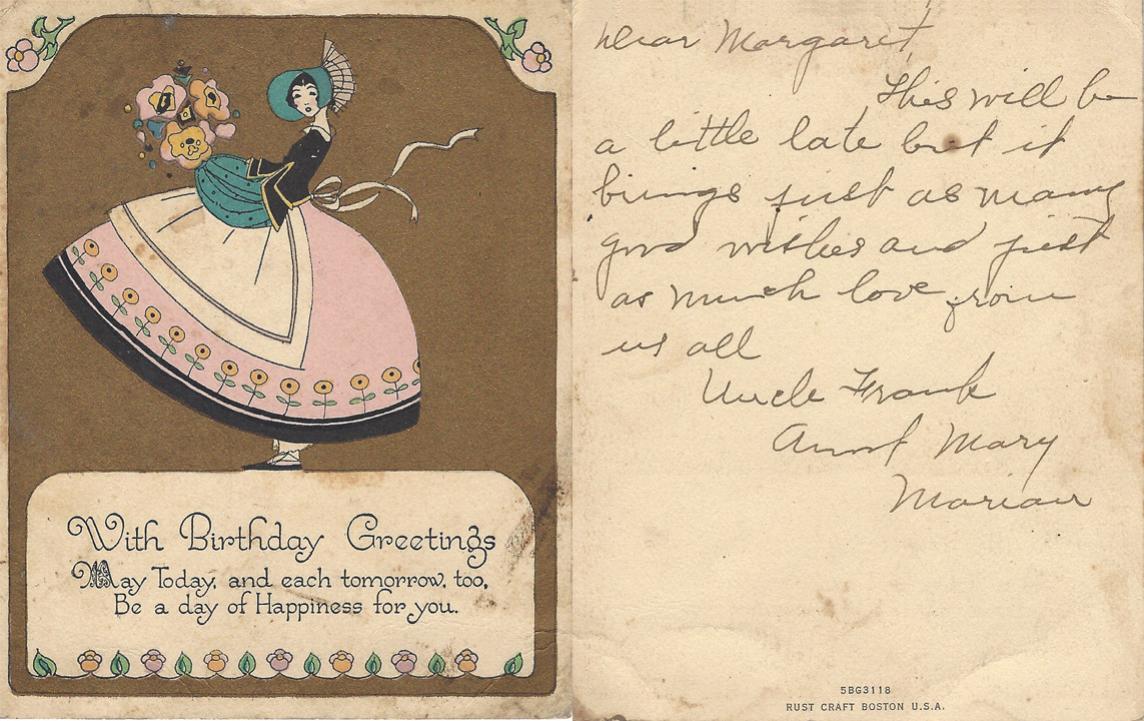 With Birthday Greetings
May Today, and each tomorrow, too,
Be a day of Happiness for you.
Dear Margaret,
This will be
a little late but it
brings just as many
good wishes and just
as much love from
us all
Uncle Frank
Aunt Mary
Marian
5BG3118
RUST CRAFT BOSTON U.S.A.